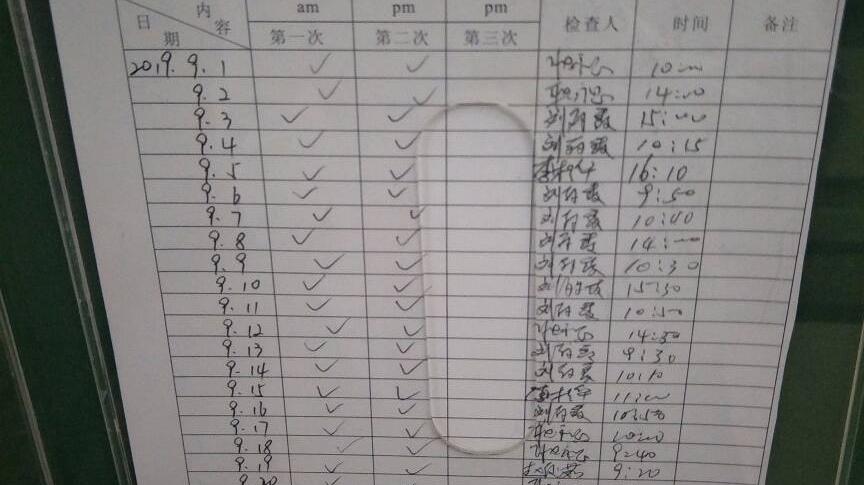 内容 am pm pm 检查人 时间 备注
日期 第一次 第二次 第三次
2019.9.1 ✓ ✓ 10:00
9.2 ✓ ✓ 14:00
9.3 ✓ ✓ 刘丽霞 15:00
9.4 ✓ ✓ 刘丽霞 10:15
9.5 ✓ ✓ 16:10
9.6 ✓ ✓ 刘丽霞 9:50
9.7 ✓ ✓ 刘丽霞 10:40
9.8 ✓ ✓ 刘丽霞 14:00
9.9 ✓ ✓ 刘丽霞 10:30
9.10 ✓ ✓ 刘丽霞 15:30
9.11 ✓ ✓ 刘丽霞 10:50
9.12 ✓ ✓ 14:30
9.13 ✓ ✓ 刘丽霞 9:30
9.14 ✓ ✓ 刘丽霞 10:10
9.15 ✓ ✓ 11:00
9.16 ✓ ✓ 刘丽霞 10:50
9.17 ✓ ✓ 10:00
9.18 ✓ ✓ 9:40
9.19 ✓ ✓ 9:20
9.20